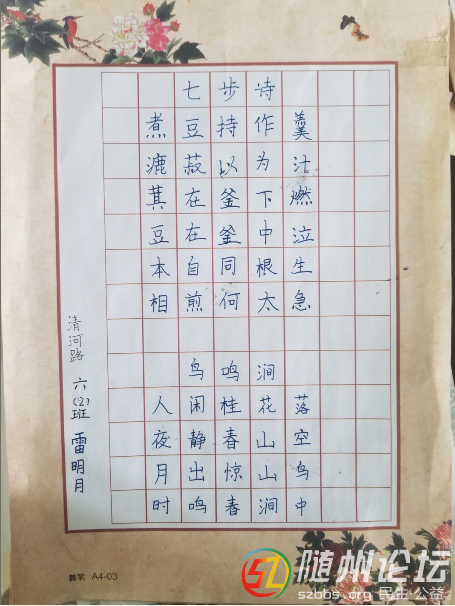 七步诗
煮豆持作羹
漉菽以为汁
萁在釜下燃
豆在釜中泣
本自同根生
相煎何太急
鸟鸣涧
人闲桂花落
夜静春山空
月出惊山鸟
时鸣春涧中
清河路 六(2)班 雷明月
A4-03
随州论坛
szbbs.org 民生 公益